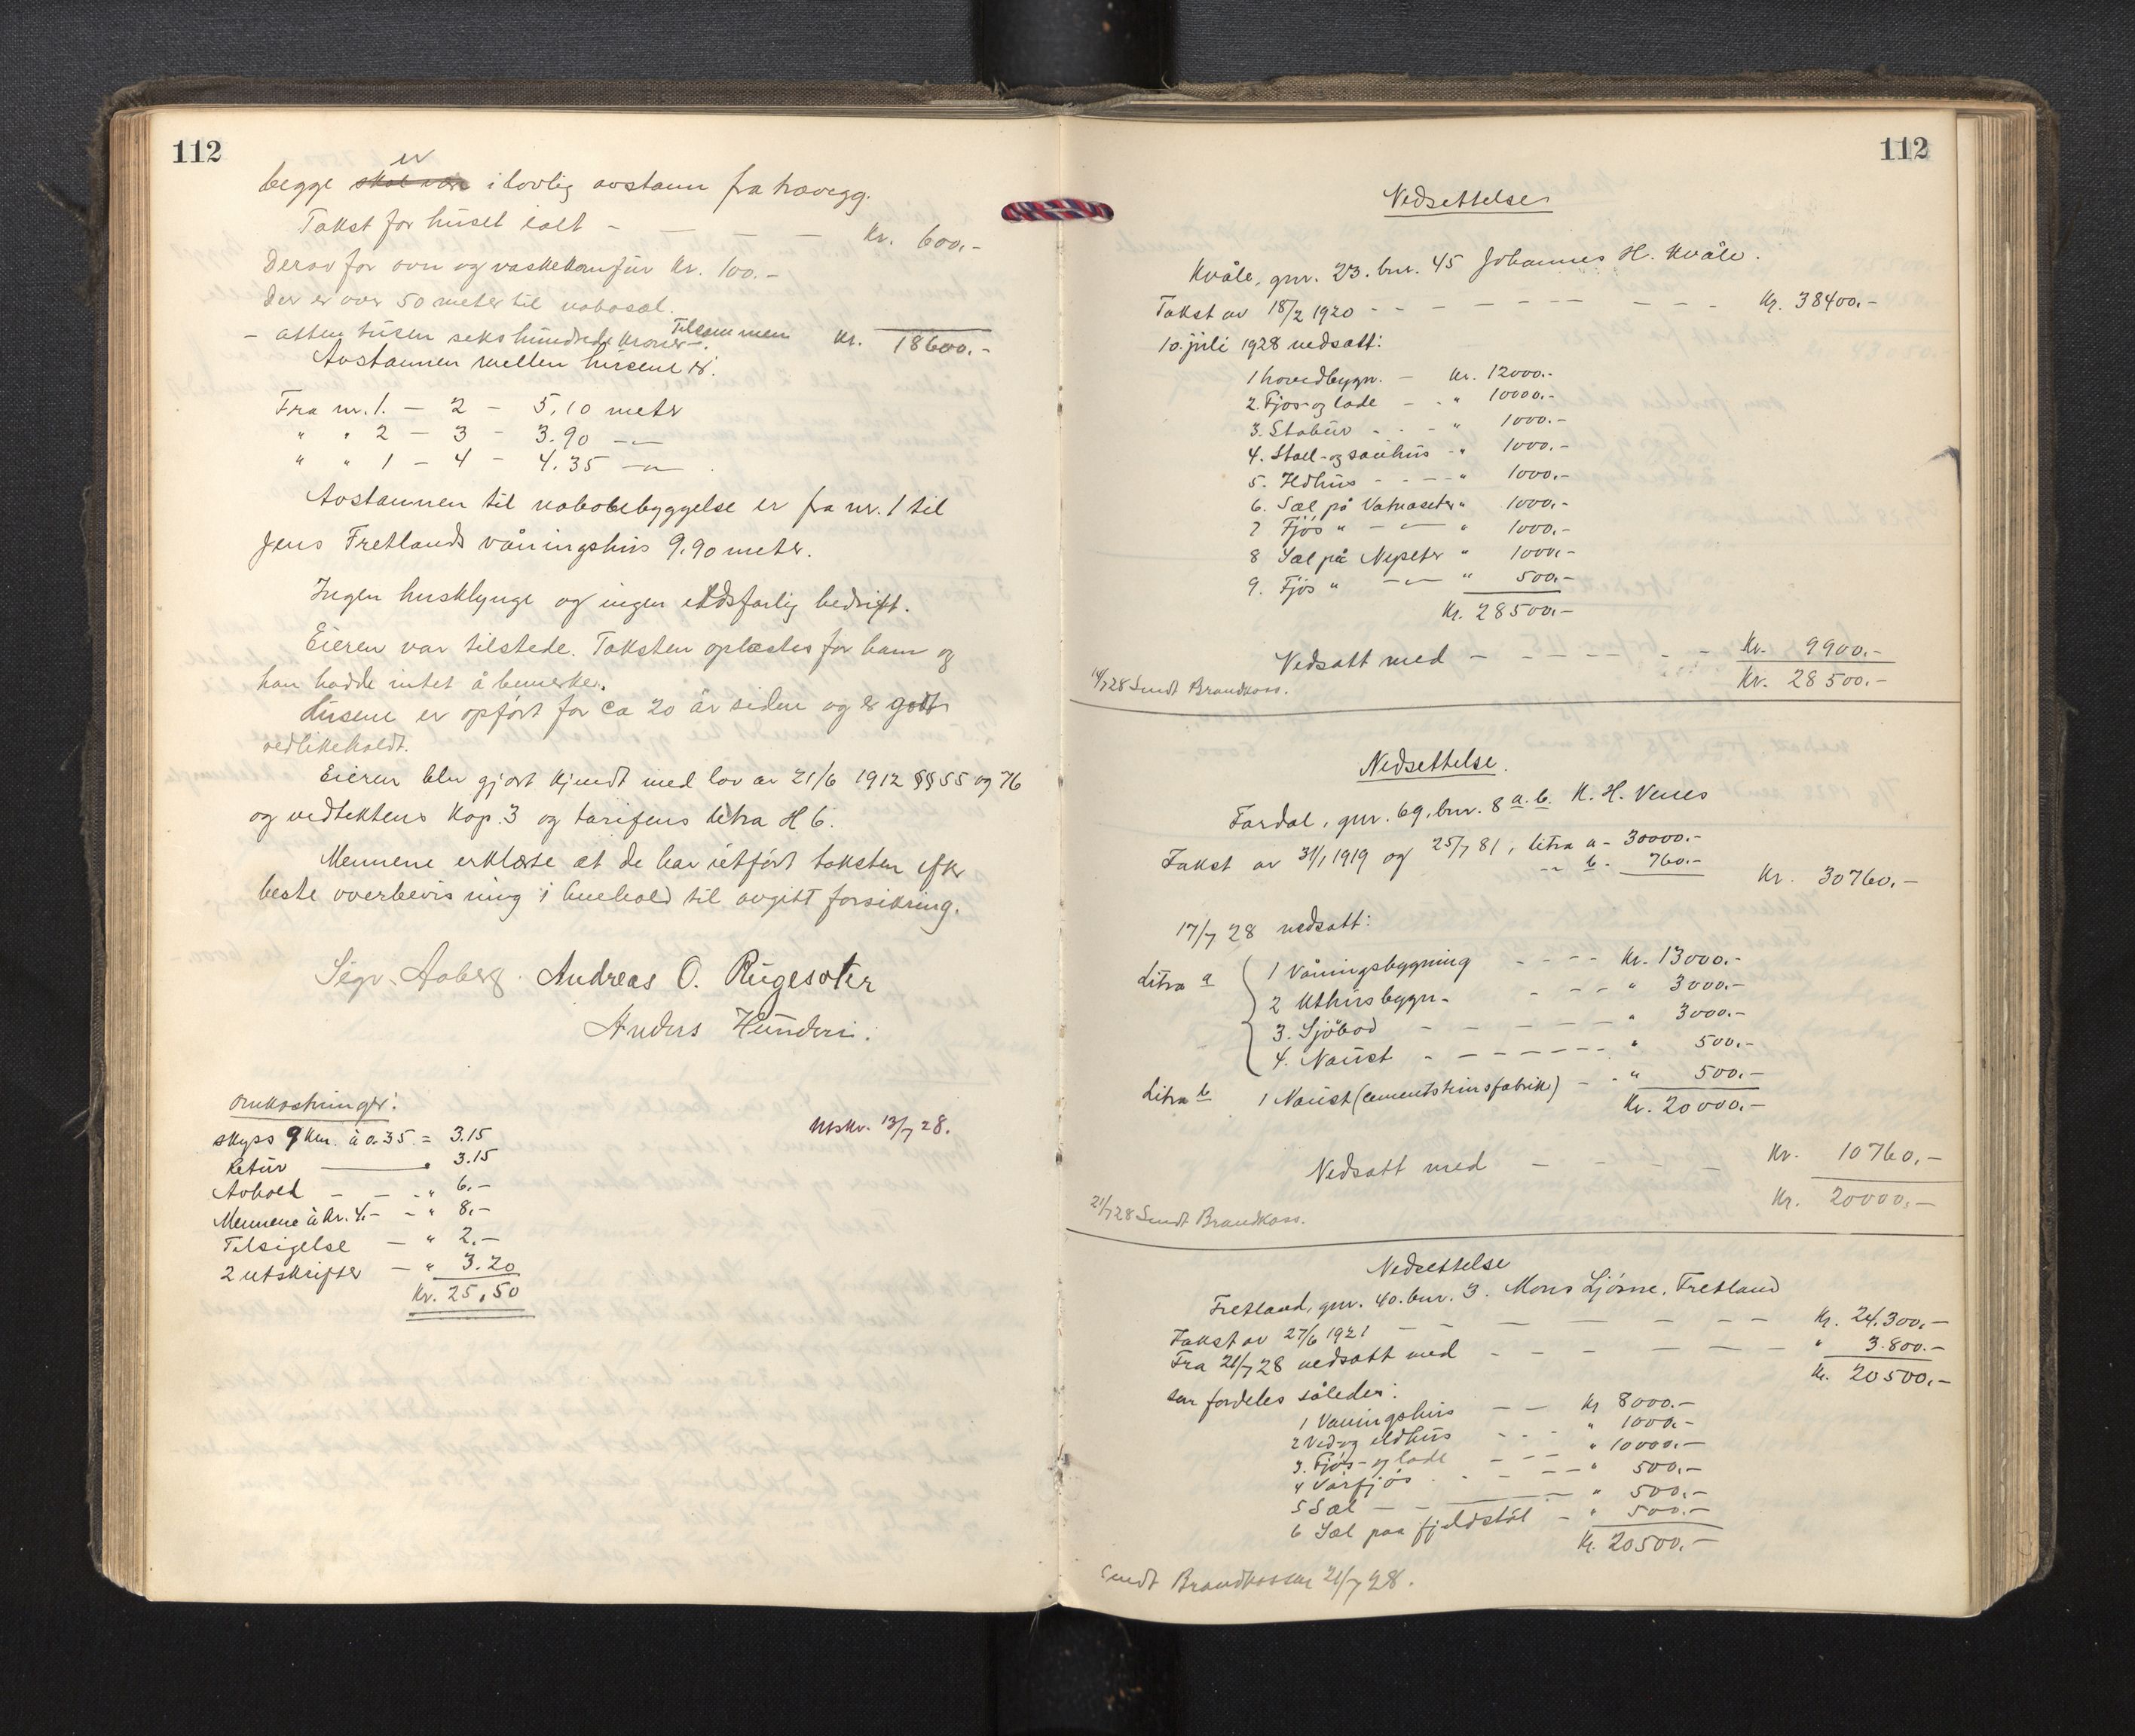 112
begge er skal være i lovlig avstann fra hovegg.
Takst for huset ialt - — — — Kr. 600,-
Derav for ovn og vaskekomfür Kr. 100.-
Der er over 50 meter til nabosæl.
- atten tusen seks hundrede kroner -. Tilsammen Kr. 18600.-
Avstannen mellem husene er:
Fra nr. 1. — 2 — 5,10 meter
" " 2 — 3 - 3.90 —"—
" " 1 — 4 - 4.35 —"—
Avstannen til nabobebyggelse er fra nr. 1 til
Jens Fretlands våningshus 9,90 meter.
Ingen husklynge og ingen ildsfarlig bedrift.
Eieren var tilstede. Taksten oplæstes for ham og
han hadde intet å bemerke.
Husene er opført for ca 20 år siden og er godt
vedlikeholdt.
Eieren blev gjort kjendt med lov av 21/6 1912 §§ 55 og 76
og vedtektens kap. 3 og tarifens litra H 6.
Mennene erklærte at de har utført taksten efter
beste overbevisning i henhold til avgitt forsikring.
Sigv. Aaberg. Andreas O. Rügesæter
Anders Hunderi.
Omkostninger:
Skyss 9 km. à 0.35 = 3.15
Retur ——— " 3.15
Avhold — — - " 6.-
Mennene à kr. 4.- - " 8.-
Tilsigelse — " 2.-
2 utskrifter — " 3.20
Kr. 25,50
Utskr. 13/7 28.
112
Nedsettelse
Kvåle, gnr. 23. bnr. 45 Johannes H. Kvåle.
Takst av 18/2 1920 - - - - - - - - - Kr. 38400.-
10. juli 1928 nedsatt:
1 hovedbygn. - Kr. 12000.-
2. Fjos- og lade - - " 10000.-
3. Stabur - - - " 1000.-
4. Stall- og sauhus - " 1000.-
5. Ildhus - - - - " 1000.-
6. Sæl på Vatnaseter " 1000.-
7 Fjøs " —"— " 1000.-
8 Sæl på Nyseter " 1000.-
9. Fjøs " —"— " 500.-
Kr. 28500.-
Nedsatt med - - - - - - - Kr. 9900.-
14/7 28 Sendt Brandkass. Kr. 28500.-
Nedsettelse.
Fardal, gnr. 69, bnr. 8 a. b. K. H. Venes
Takst av 31/1 1919 og 25/7 81, litra a - 30000.-
—"— b. 760.- Kr. 30760.-
17/7 28 nedsatt:
Litra a 1 Våningsbygning - - - - Kr. 13000.-
2 Uthusbygn. - - - - " 3000.-
3. Sjøbod - - - - - - " 3000.-
4. Naust - - - - - - - " 500.-
Litra b 1 Naust (cementstensfabrik) - - " 500.-
Kr. 20000.-
Nedsatt med — - - - — Kr. 10760.-
21/7 28 Sendt Brandkass. Kr. 20000.-
Nedsettelse
Fretland, gnr. 40. bnr. 3. Mons Ljøsne, Fretland
Takst av 27/6 1921 — — — — — — Kr. 24.300.-
Fra 21/7 28 nedsatt med - - - — — — " 3.800.-
Kr. 20500.-
som fordeles således:
1 Våningshus — — Kr 8000.-
2 Ved og ildhus - - - " 1000.-
3. Fjøs- og lade - — — " 10000.-
4 Vårfjøs - - - — — " 500.-
5 Sæl — - ——— " 500.-
6 Sæl paa fjeldstøl - " 500.-
Kr. 20500.-
Sendt Brandkassen 21/7 28.